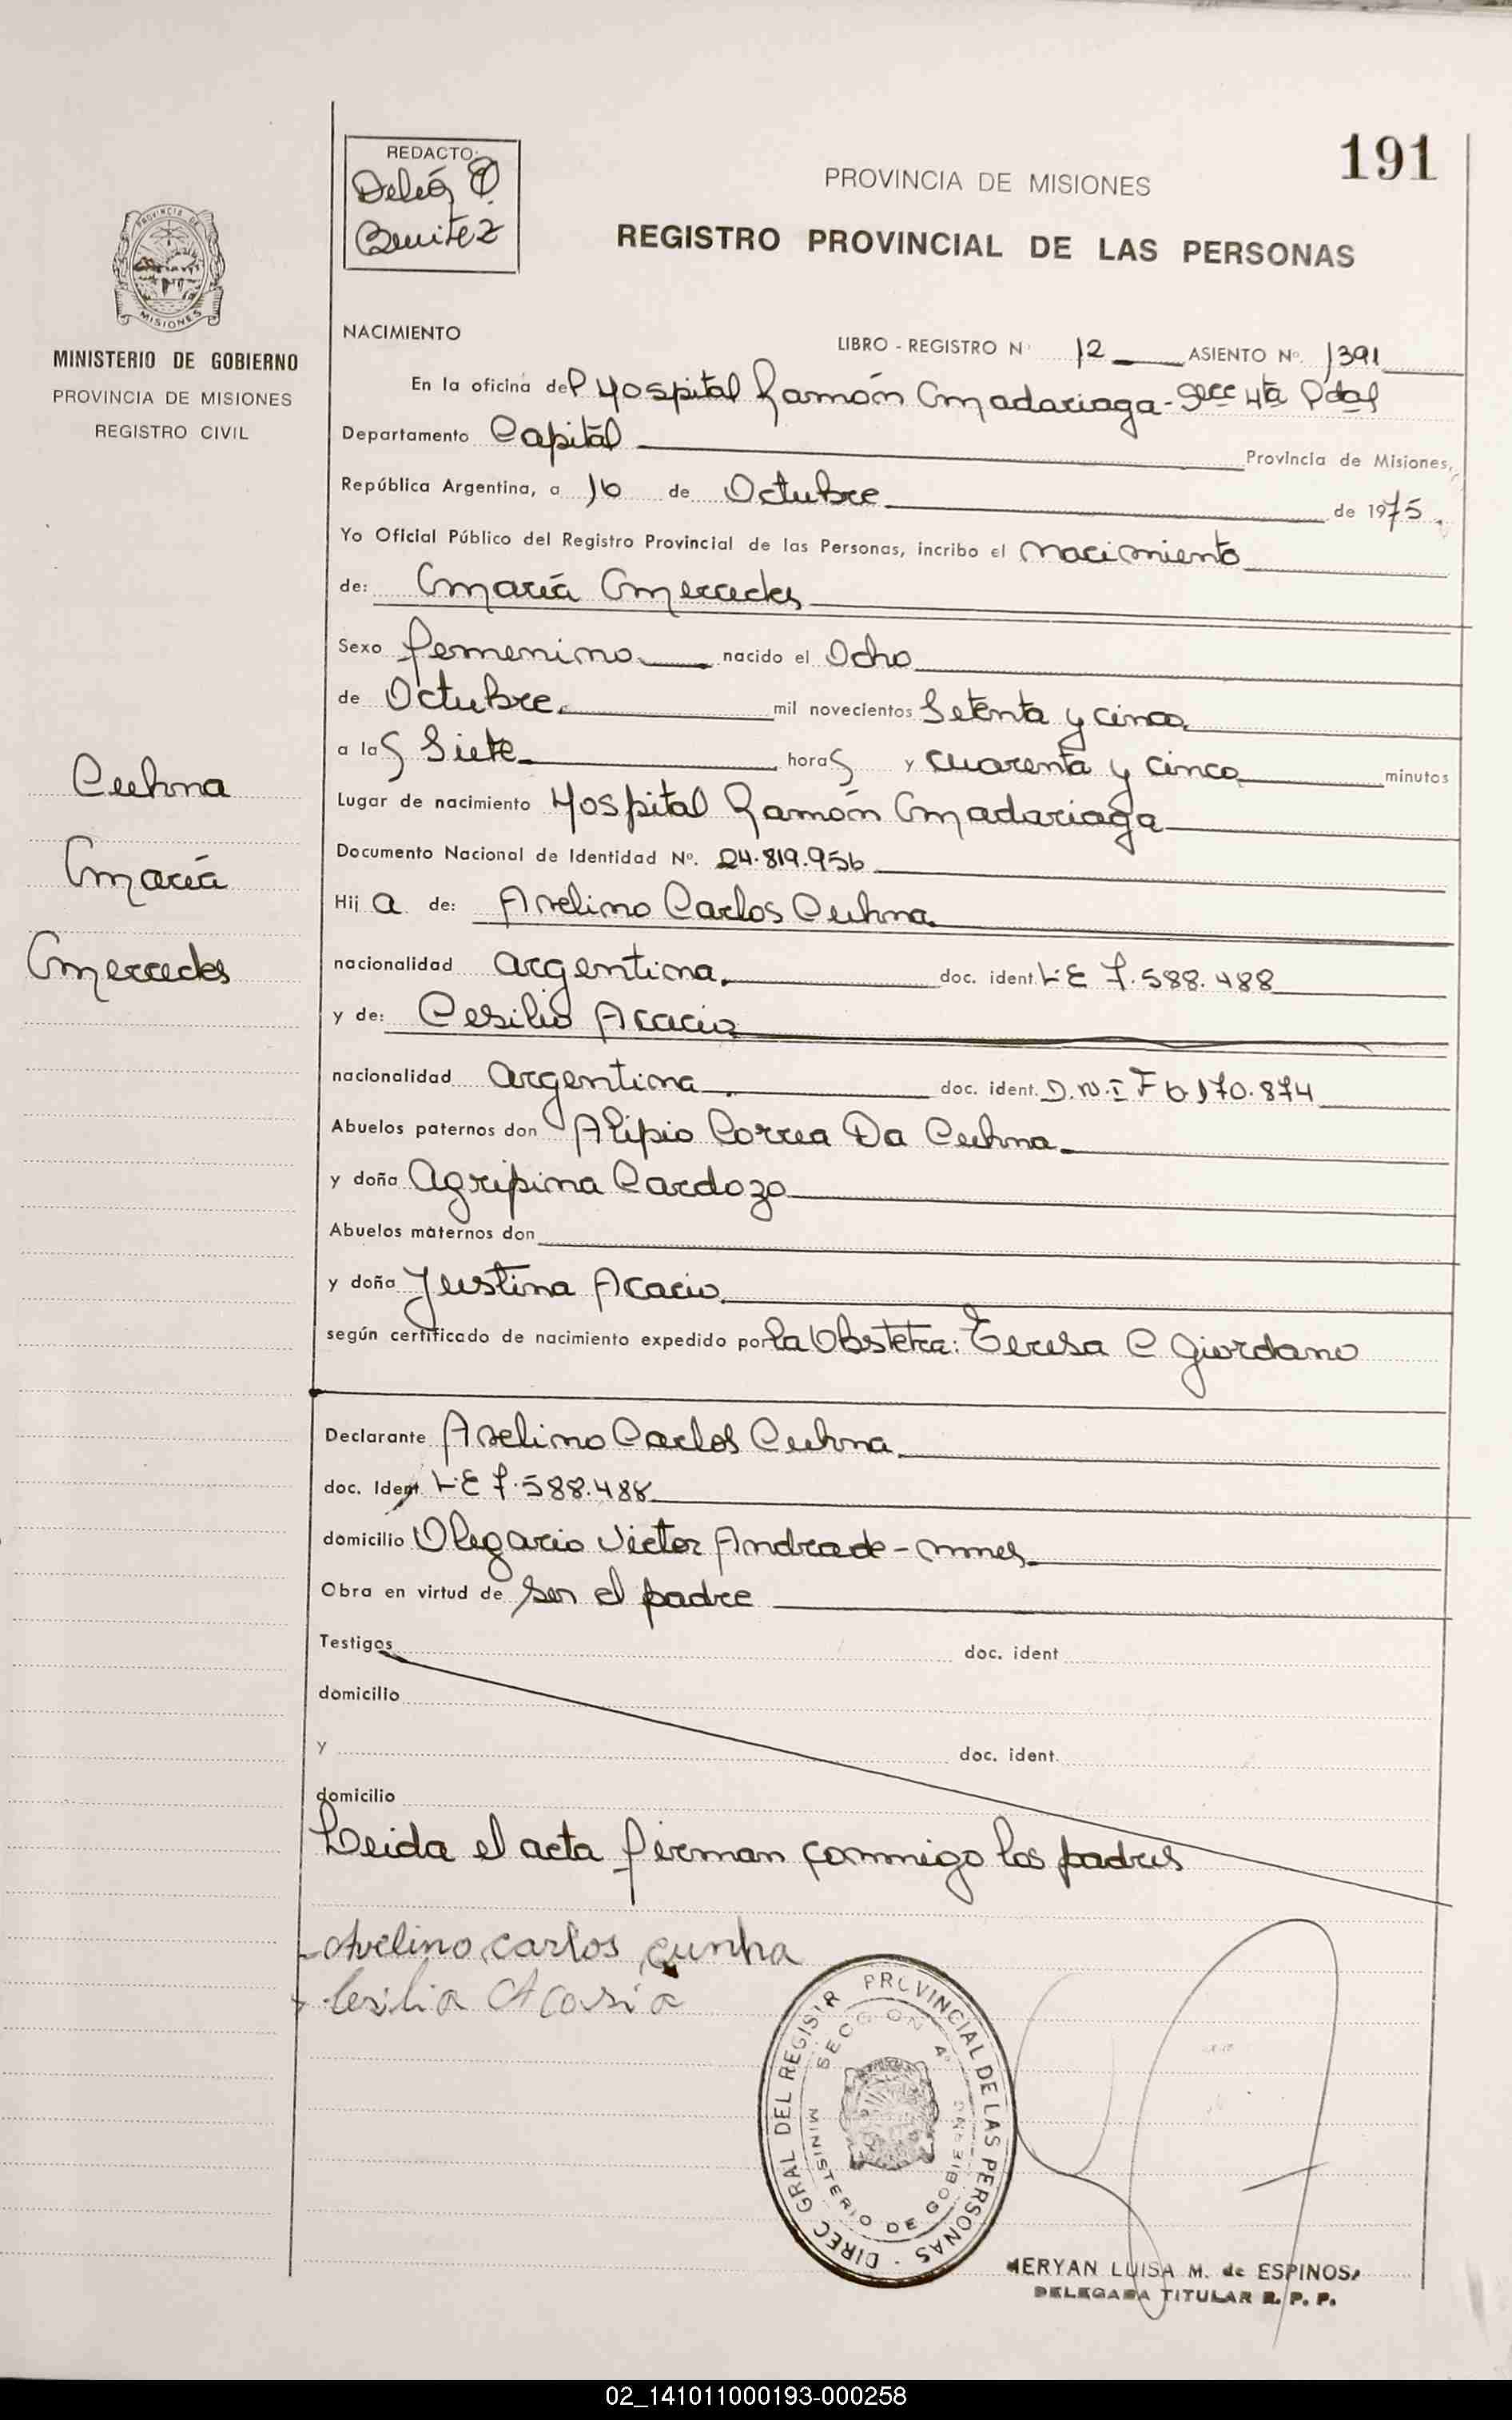 191
REDACTO:
Delia
Benitez
PROVINCIA DE MISIONES
REGISTRO PROVINCIAL DE LAS PERSONAS
PROVINCIA DE
MISIONES
MINISTERIO DE GOBIERNO
PROVINCIA DE MISIONES
REGISTRO CIVIL
NACIMIENTO
LIBRO - REGISTRO Nº 12 ASIENTO Nº. 1391
En la oficina del Hospital Ramón Madariaga - Secc 4ta Pdas
Departamento Capital Provincia de Misiones,
República Argentina, a 16 de Octubre de 1975.
Yo Oficial Público del Registro Provincial de las Personas, incribo el nacimiento
de: María Mercedes
Sexo femenino nacido el Ocho
de Octubre mil novecientos Setenta y cinco
a las Siete horas y cuarenta y cinco minutos
Lugar de nacimiento Hospital Ramón Madariaga
Documento Nacional de Identidad Nº. 24.819.956
Hija de: Avelino Carlos Cuhna
nacionalidad argentina doc. ident. L.E 7.588.488
y de: Cesilio Acacio
nacionalidad argentina doc. ident. D.N.I F 6.170.874
Abuelos paternos don Alipio Correa Da Cuhna
y doña Agripina Cardozo
Abuelos maternos don
y doña Justina Acacio
según certificado de nacimiento expedido por la Obstetra: Teresa C Giordano
Declarante Avelino Carlos Cuhna
doc. Ident. L.E 7.588.488
domicilio Olegario Victor Andrade - Mnes
Obra en virtud de ser el padre
Testigos doc. ident
domicilio
y doc. ident.
domicilio
Leida el acta firman conmigo los padres
Avelino Carlos cunha
Cesilia Acosia
Cuhna
María
Mercedes
DIREC GRAL DEL REGISTR PROVINCIAL DE LAS PERSONAS
SECCION 4ª
MINISTERIO DE GOBIERNO
MERYAN LUISA M. de ESPINOSA
DELEGADA TITULAR R. P. P.
02_141011000193-000258